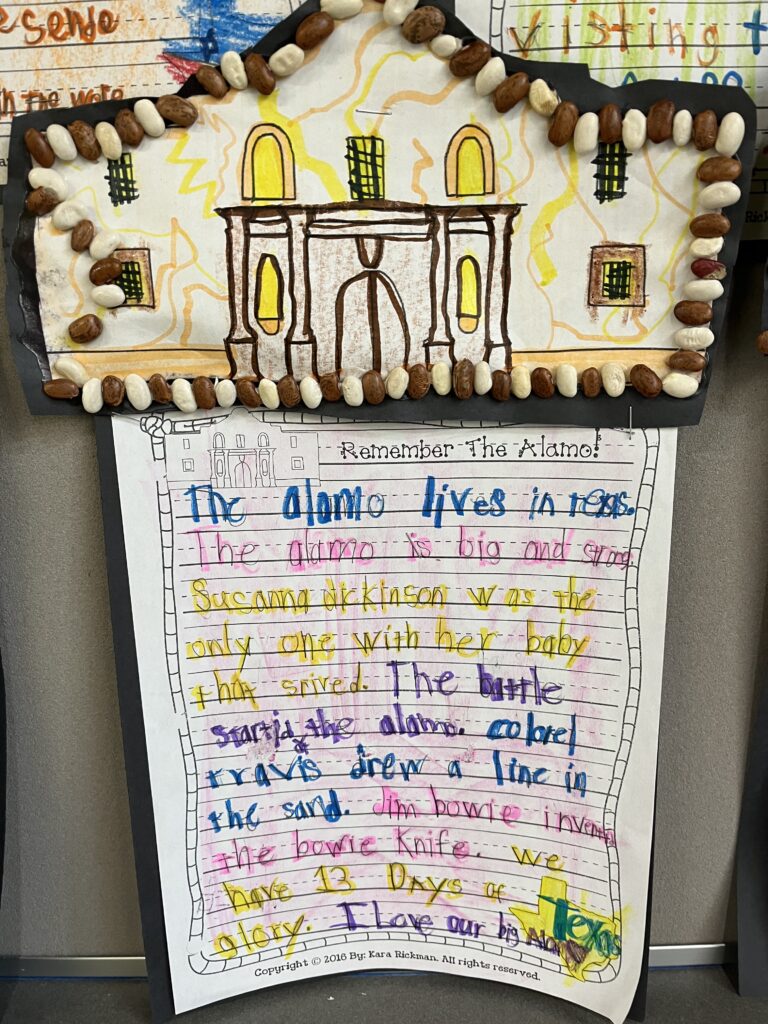 e sense
visting t
th the wore
Remember The Alamo!
The alamo lives in texas.
The alamo is big and strong.
Susanna dickinson was the
only one with her baby
that srived. The battle
startid at the alamo. colorel
travis drew a line in
the sand. Jim bowie invented
the bowie Knife. we
have 13 Days of
glory. I Love our big Alamo
Texas
Copyright © 2016 By: Kara Rickman. All rights reserved.